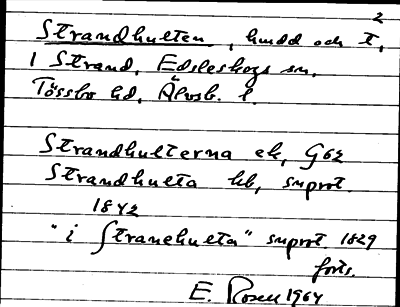 2
Strandhulten, hmdd och t,
i Strand, Edsleskogs sn,
Tössbo hd, Älvsb. l.
Strandhulterna ek, G62
Strandhulta hb, snprot.
1842
"i Stranehulta" snprot. 1829
forts.
E. Rosen 1964